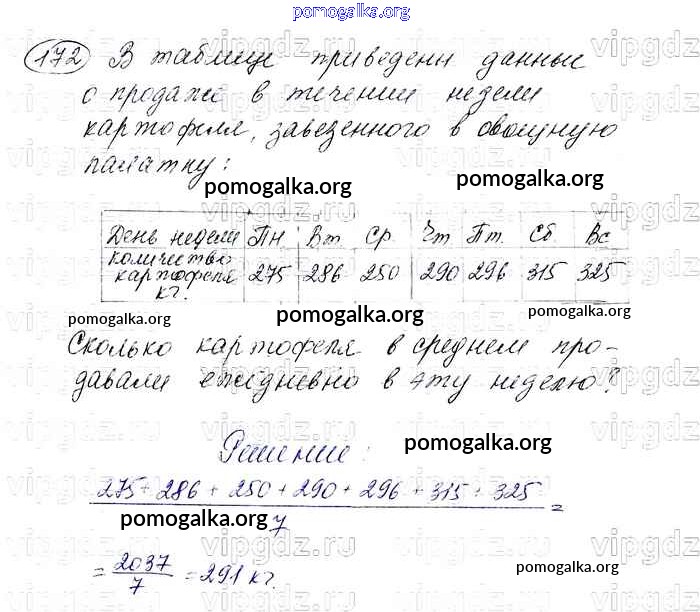 pomogalka.org
172 В таблице приведены данные
о продаже в течении недели
картофеля, завезенного в овощную
палатку:
pomogalka.org pomogalka.org
День недели Пн Вт Ср. Чт Пт. Сб Вс
количество картофеля кг. 275 286 250 290 296 315 325
pomogalka.org pomogalka.org pomogalka.org
Сколько картофеля в среднем про-
давали ежедневно в эту неделю?
Решение:
pomogalka.org
275 + 286 + 250 + 290 + 296 + 315 + 325
/ 7 =
pomogalka.org
= 2037/7 = 291 кг.
pomogalka.org
vipgdz.ru